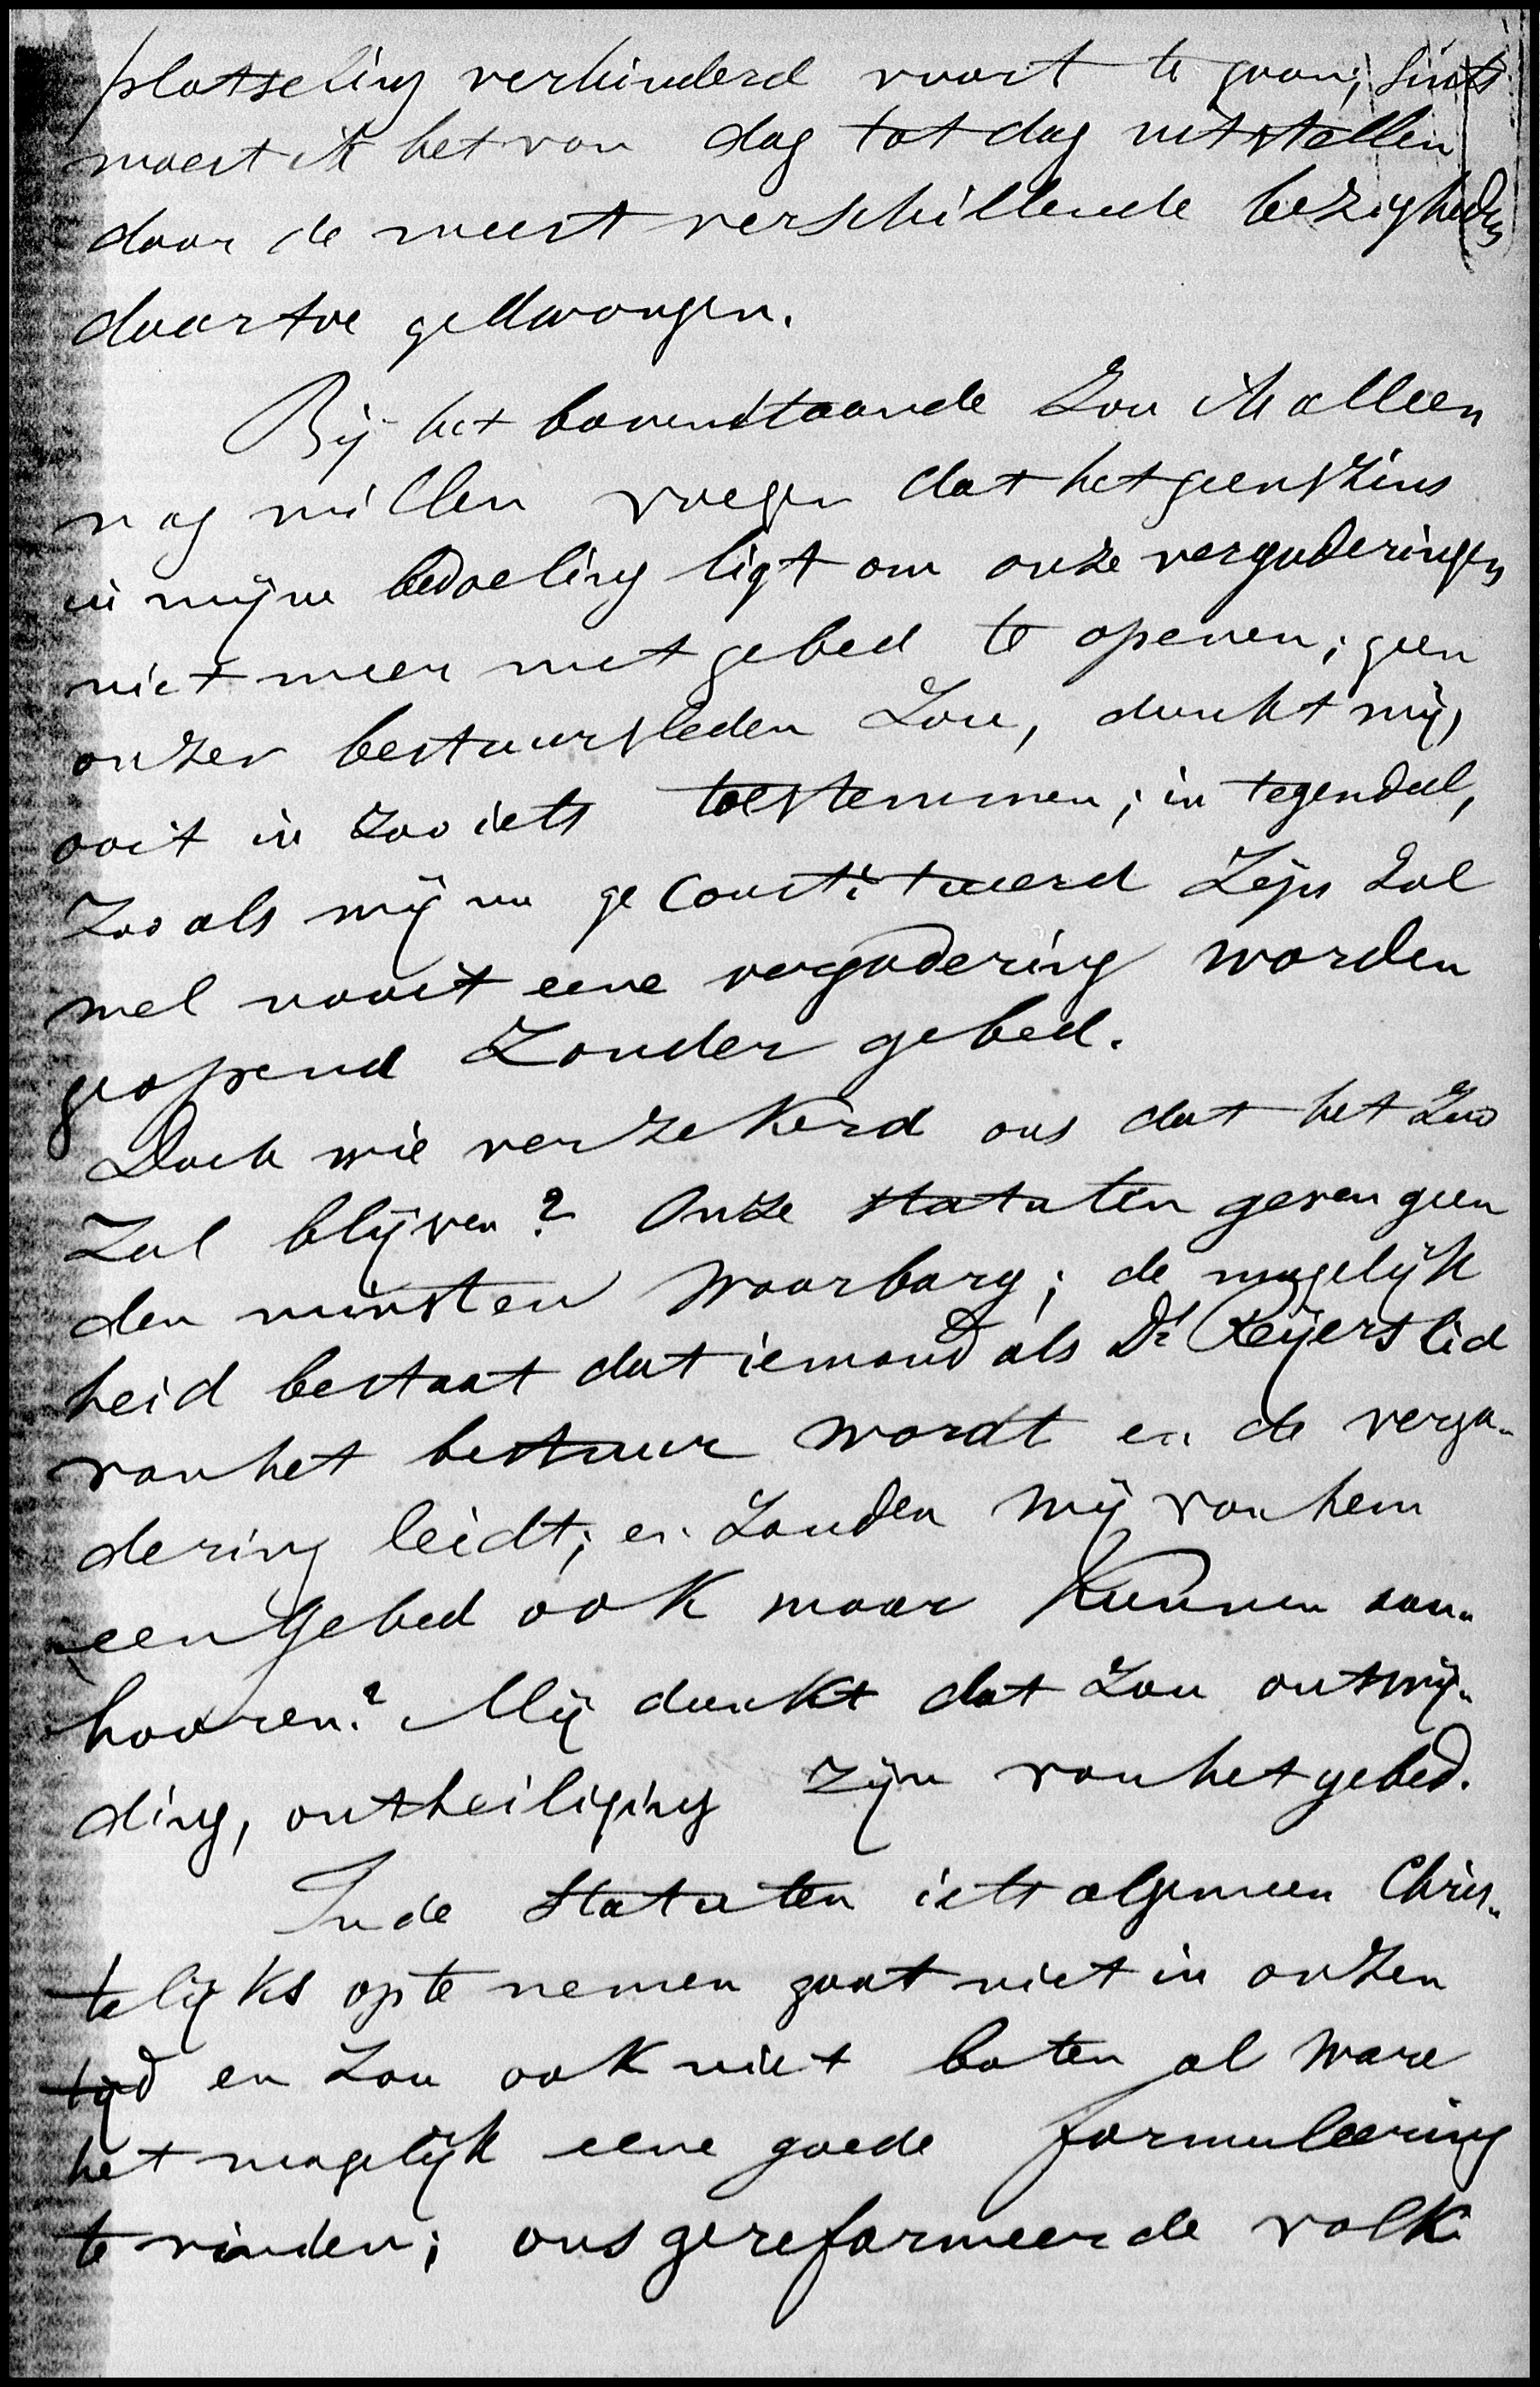 plotseling verhinderd voort te gaan; sints
moest ik het van dag tot dag uitstellen
door de meest verschillende bezigheden
daartoe gedwongen.
Bij het bovenstaande zou ik alleen
nog willen voegen dat het geenszins
in mijne bedoeling ligt om onze vergaderingen
niet meer met gebed te openen; geen
onzer bestuursleden zou, dunkt mij,
ooit in zoo iets toestemmen; in tegendeel,
zooals wij nu geconstitueerd zijn zal
wel nooit eene vergadering worden
geopend zonder gebed.
Doch wie verzekerd ons dat het zoo
zal blijven? Onze statuten geven geen
den minsten waarborg; de mogelijk
heid bestaat dat iemand als Dr Reijers lid
van het bestuur wordt en de verga-
dering leidt; en zouden wij van hem
een gebed ook maar kunnen aan-
hooren? Mij dunkt dat zou ontwij-
ding, ontheiliging zijn van het gebed.
In de statuten iets algemeen Chris-
telijks op te nemen gaat niet in onzen
tijd en zou ook niet baten al ware
het mogelijk eene goede formuleering
te vinden; ons gereformeerde volk